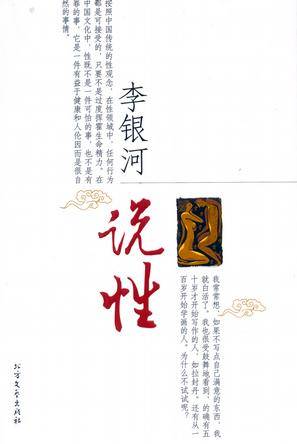 按照中国传统的性观念，在性领域中，任何行为
都是可接受的，只要不是过度挥霍生命精力。在
中国文化中，性既不是一件可怕的事，也不是有
害的事，它是一件有益于健康和人伦因而是很自
然的事情。
李银河
说性
我常常想，如果不写点自己满意的东西，我
就白活了。我也很受鼓舞地看到，的确有五
十岁才开始写作的人，如拉封丹。还有从一
百岁开始学画的人。为什么不试试呢？
北方文艺出版社